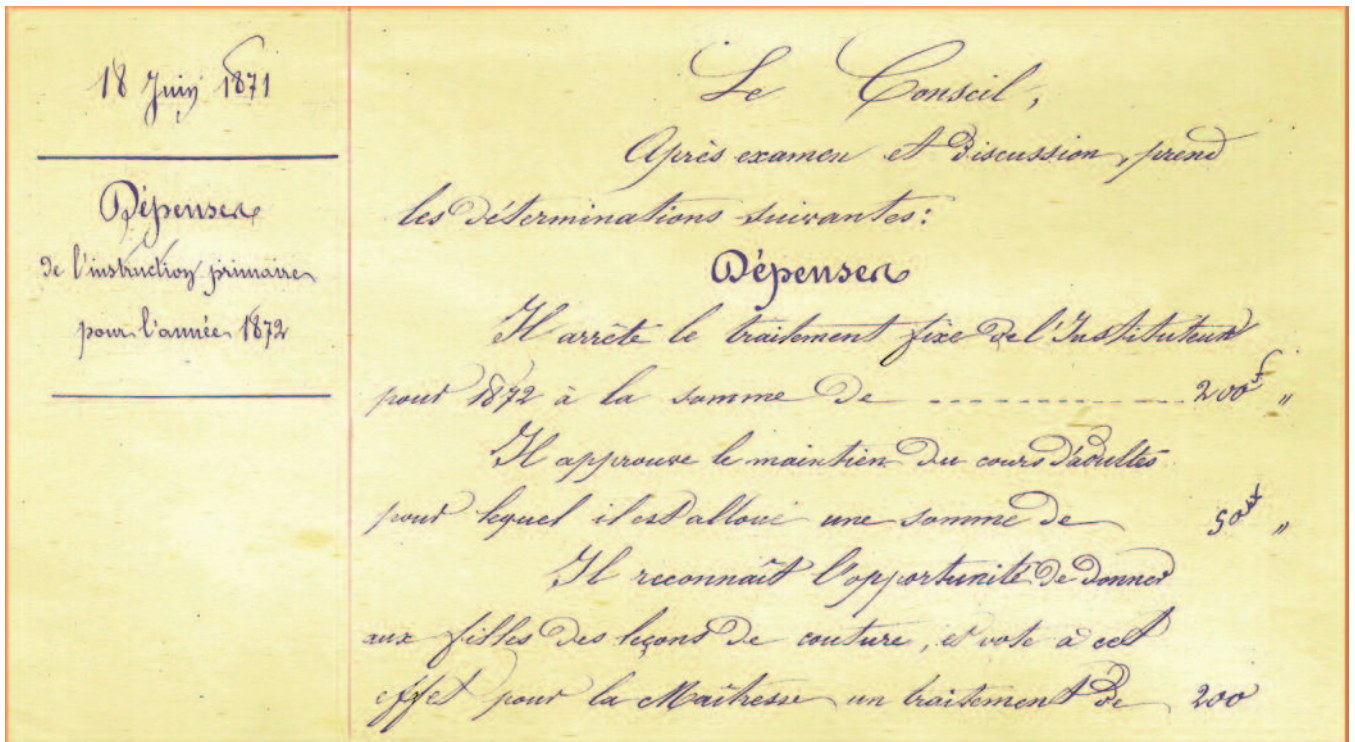 18 Juin 1871
Dépenses
de l'instruction primaire
pour l'année 1872
Le Conseil,
Après examen et discussion, prend
les déterminations suivantes :
Dépenses
Il arrête le traitement fixe de l'Instituteur
pour 1872 à la somme de -------------- 200f "
Il approuve le maintien du cours d'adultes
pour lequel il est alloué une somme de 50f "
Il reconnaît l'opportunité de donner
aux filles des leçons de couture, et vote à cet
effet pour la Maîtresse un traitement de 200